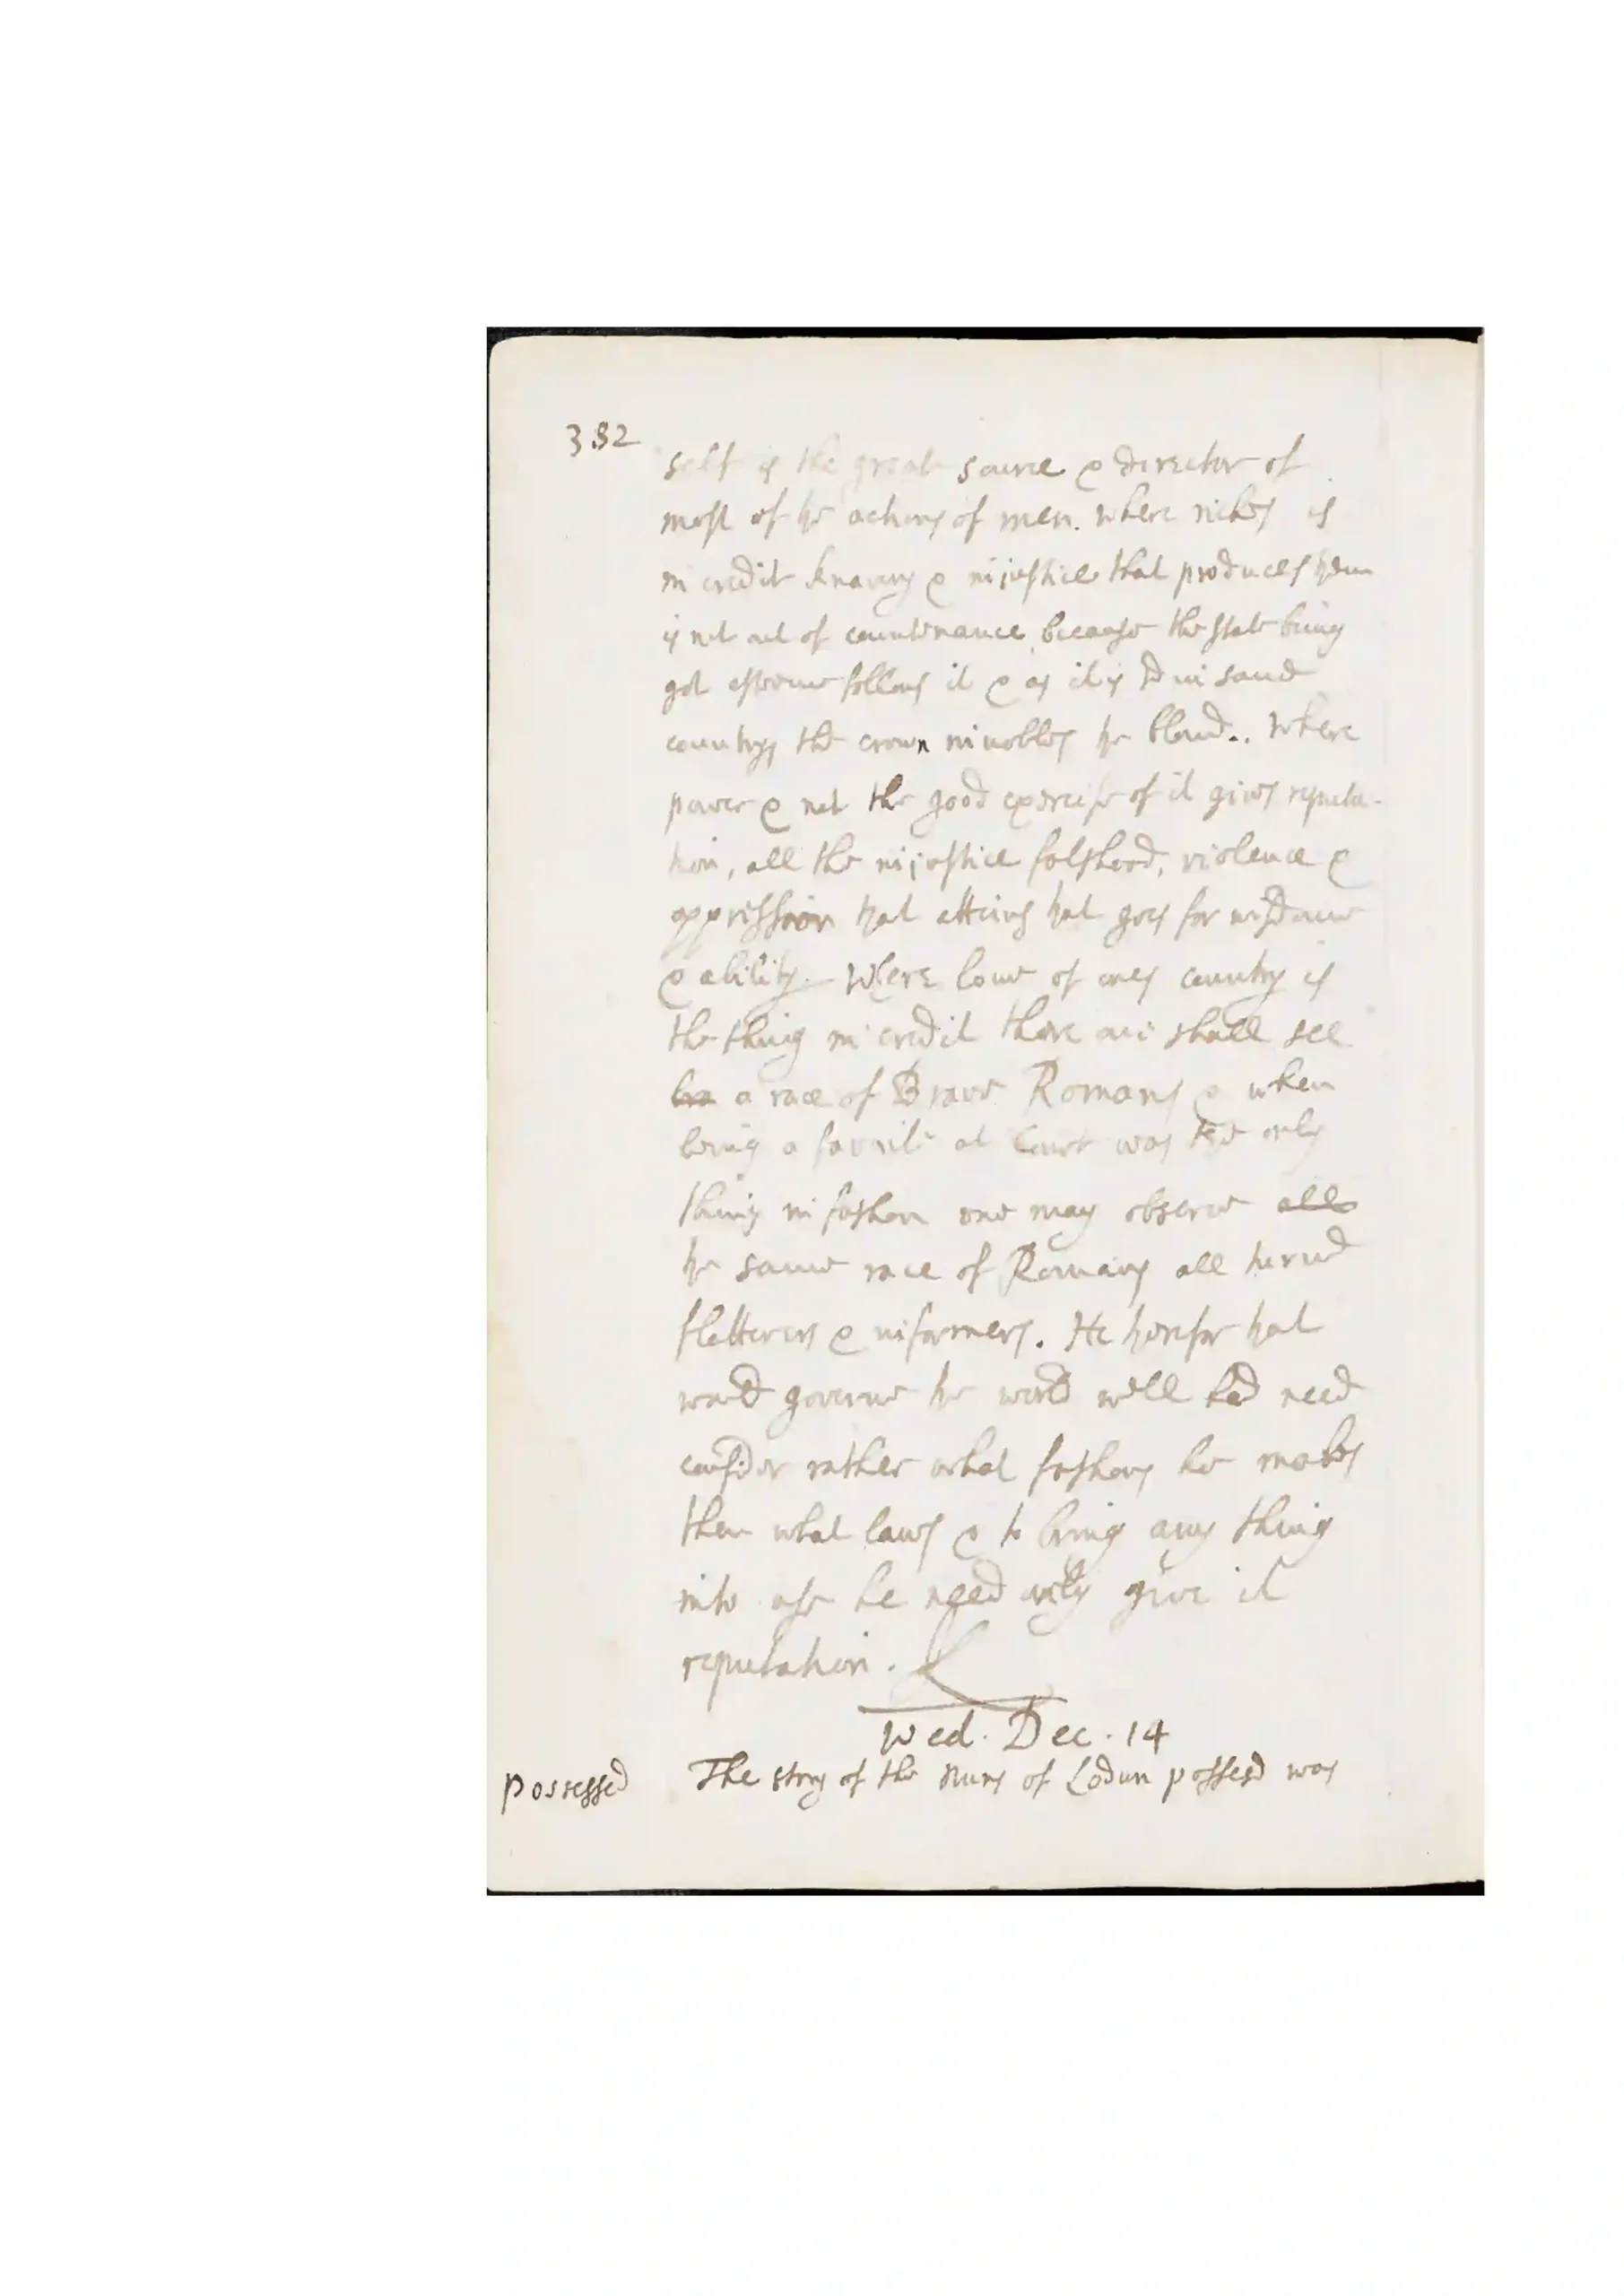 382
self is the great source & director of
most of the actions of men. where riches is
in credit knavery & injustice that produces them
is not out of countenance, because the state being
got esteeme follows it & as it is sd in some
countrys the crown innobles the bloud.. Where
power & not the good exercise of it gives reputa-
tion, all the injustice falshood, violence &
oppression that atteins that goes for wisdome
& ability. Where love of ones country is
the thing in credit there one shall see
bra a race of Brave Romans & when
being a favorite at Court was the only
thing in fashon one may observe all
the same race of Romans all turnd
flatterers & informers. He therefor that
would governe the world well had need
consider rather what fashons he makes
then what laws & to bring any thing
into use he need only give it
reputation.
Wed. Dec. 14
Possessed The story of the Nuns of Lodun possesd was